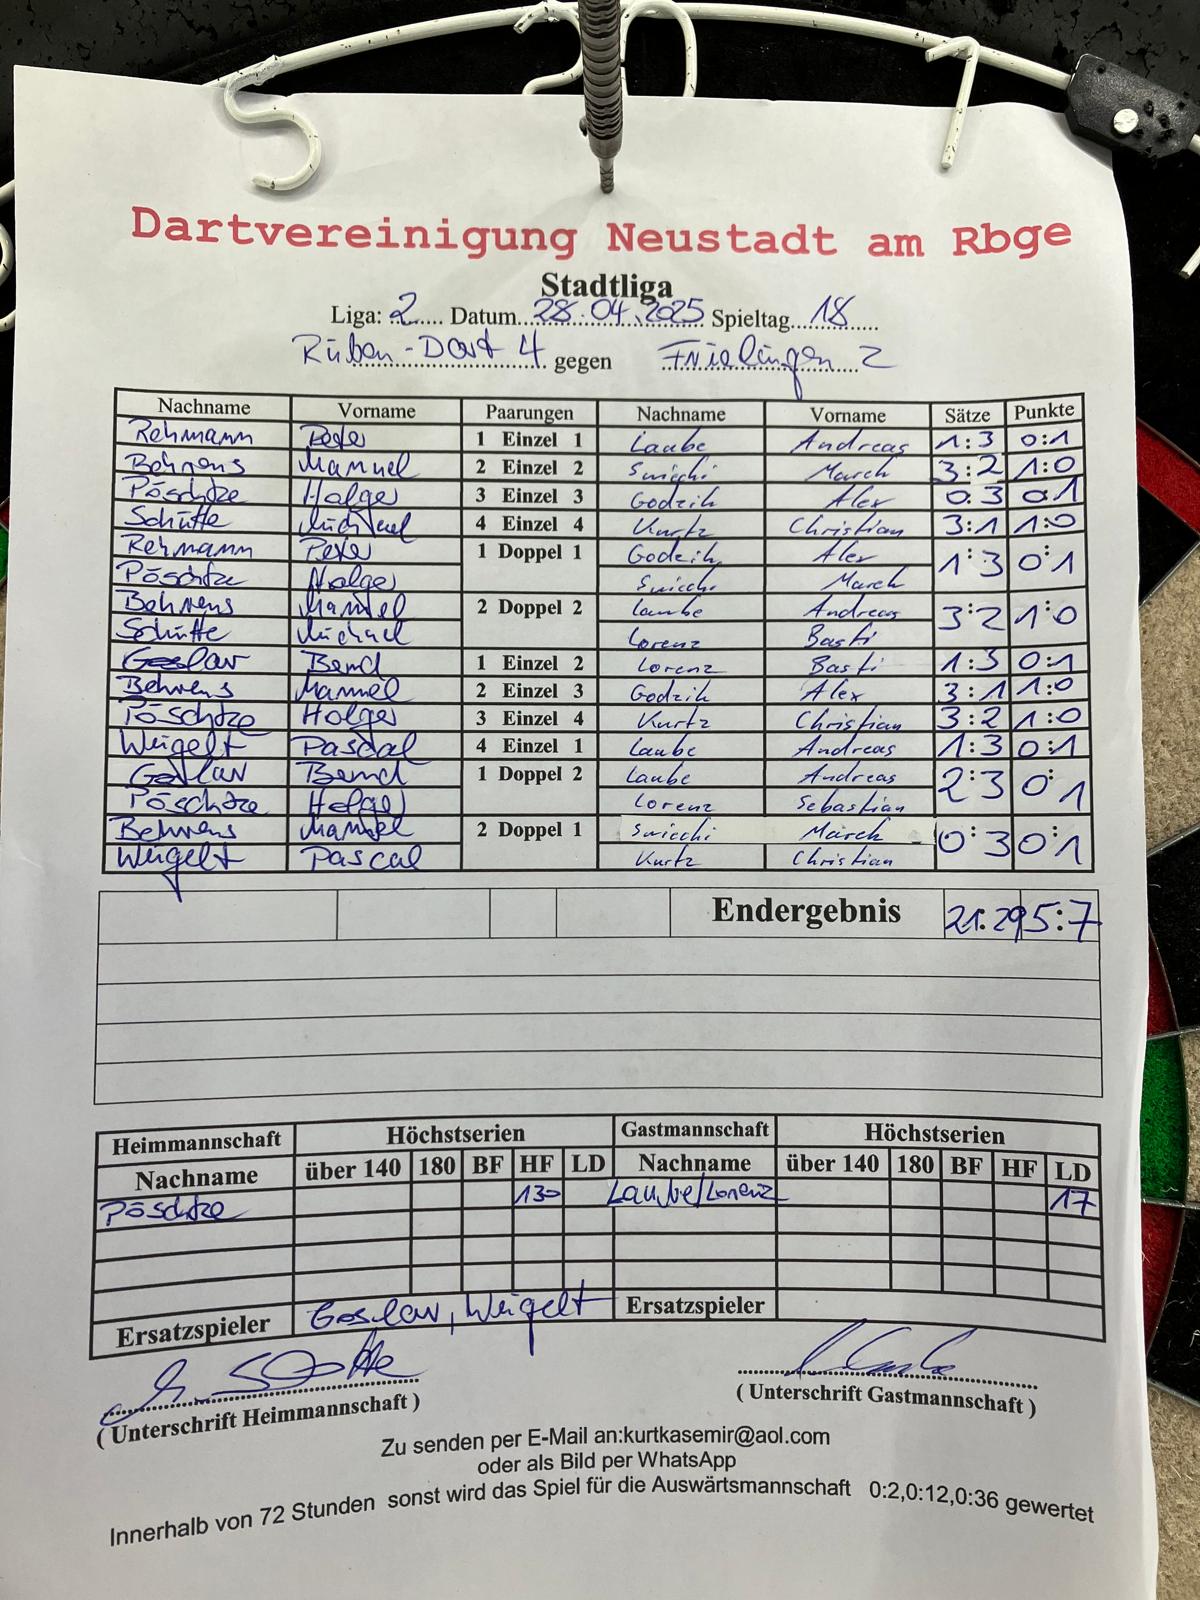 Dartvereinigung Neustadt am Rbge
Stadtliga
Liga: 2 Datum 28.04.2025 Spieltag 18
Rüben-Dart 4 gegen Frielingen 2
Nachname Vorname Paarungen Nachname Vorname Sätze Punkte
Rehmann Peter 1 Einzel 1 Laube Andreas 1:3 0:1
Behrens Manuel 2 Einzel 2 Swicchi March 3:2 1:0
Pöschtze Holger 3 Einzel 3 Godzik Alex 0:3 0:1
Schütte Michael 4 Einzel 4 Kurtz Christian 3:1 1:0
Rehmann Peter 1 Doppel 1 Godzik Alex 1:3 0:1
Pöschtze Holger Swicchi March
Behrens Manuel 2 Doppel 2 Laube Andreas 3:2 1:0
Schütte Michael Lorenz Basti
Goslar Bernd 1 Einzel 2 Lorenz Basti 1:3 0:1
Behrens Manuel 2 Einzel 3 Godzik Alex 3:1 1:0
Pöschtze Holger 3 Einzel 4 Kurtz Christian 3:2 1:0
Weigelt Pascal 4 Einzel 1 Laube Andreas 1:3 0:1
Goslar Bernd 1 Doppel 2 Laube Andreas 2:3 0:1
Pöschtze Holger Lorenz Sebastian
Behrens Manuel 2 Doppel 1 Swicchi March 0:3 0:1
Weigelt Pascal Kurtz Christian
Endergebnis 21:29 5:7
Heimmannschaft Höchstserien Gastmannschaft Höchstserien
Nachname über 140 180 BF HF LD Nachname über 140 180 BF HF LD
Pöschtze 130 Laube/Lorenz 17
Ersatzspieler Goslar, Weigelt Ersatzspieler
( Unterschrift Heimmannschaft ) ( Unterschrift Gastmannschaft )
Zu senden per E-Mail an:kurtkasemir@aol.com
oder als Bild per WhatsApp
Innerhalb von 72 Stunden sonst wird das Spiel für die Auswärtsmannschaft 0:2,0:12,0:36 gewertet